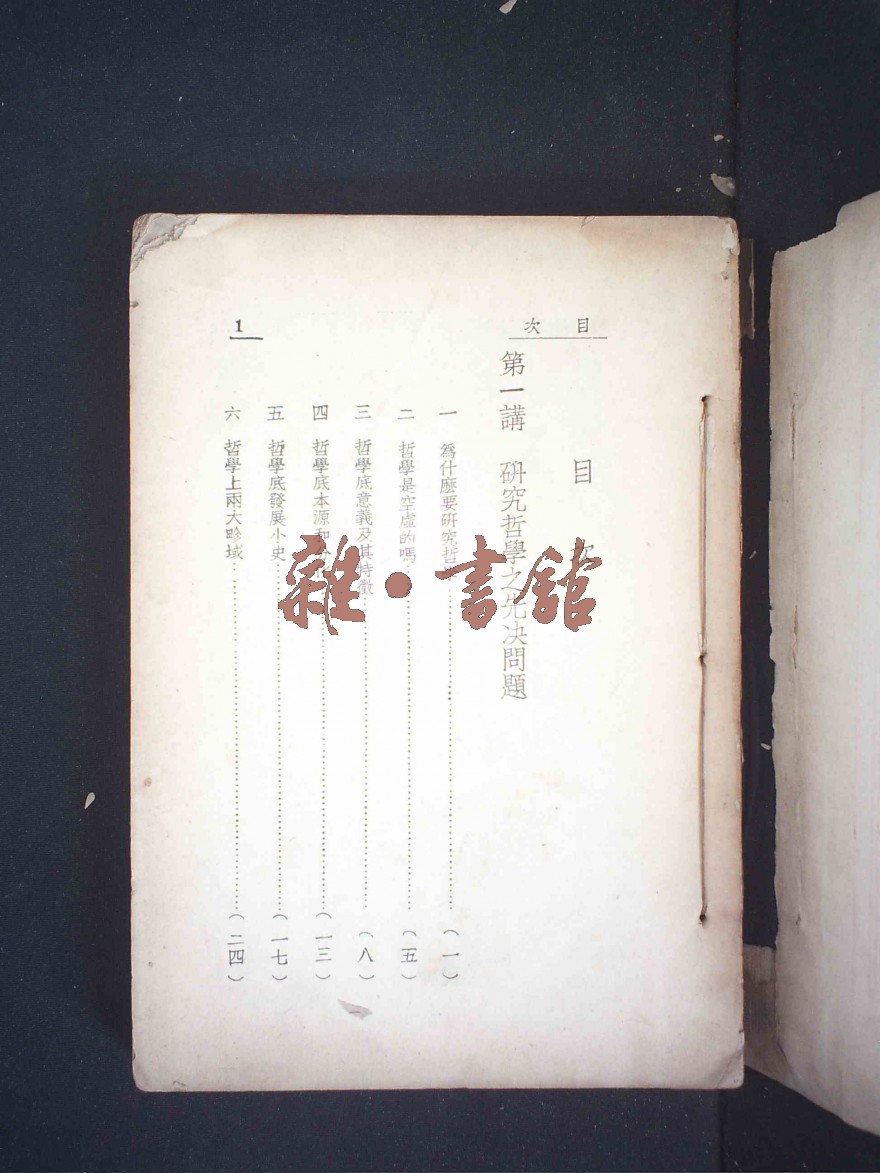 目 次
1
目 次
第一講 研究哲學之先決問題
一 爲什麽要研究哲學……(一)
二 哲學是空虛的嗎……(五)
三 哲學底意義及其特徵……(八)
四 哲學底本源和……(一三)
五 哲學底發展小史……(一七)
六 哲學上兩大畛域……(二四)
雜·書館